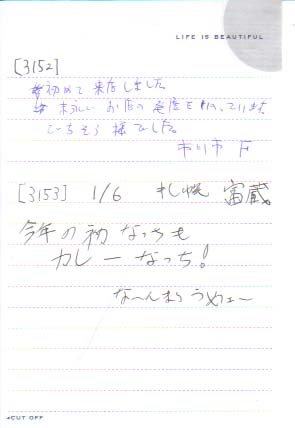 LIFE IS BEAUTIFUL
[3152]
初めて来店しました。
末永いお店の発展を祈っています
ごちそう様でした。
市川市 F
[3153] 1/6 札幌 富蔵。
今年の初なっちも
カレーなっち!
な〜んまらうめェー
CUT OFF